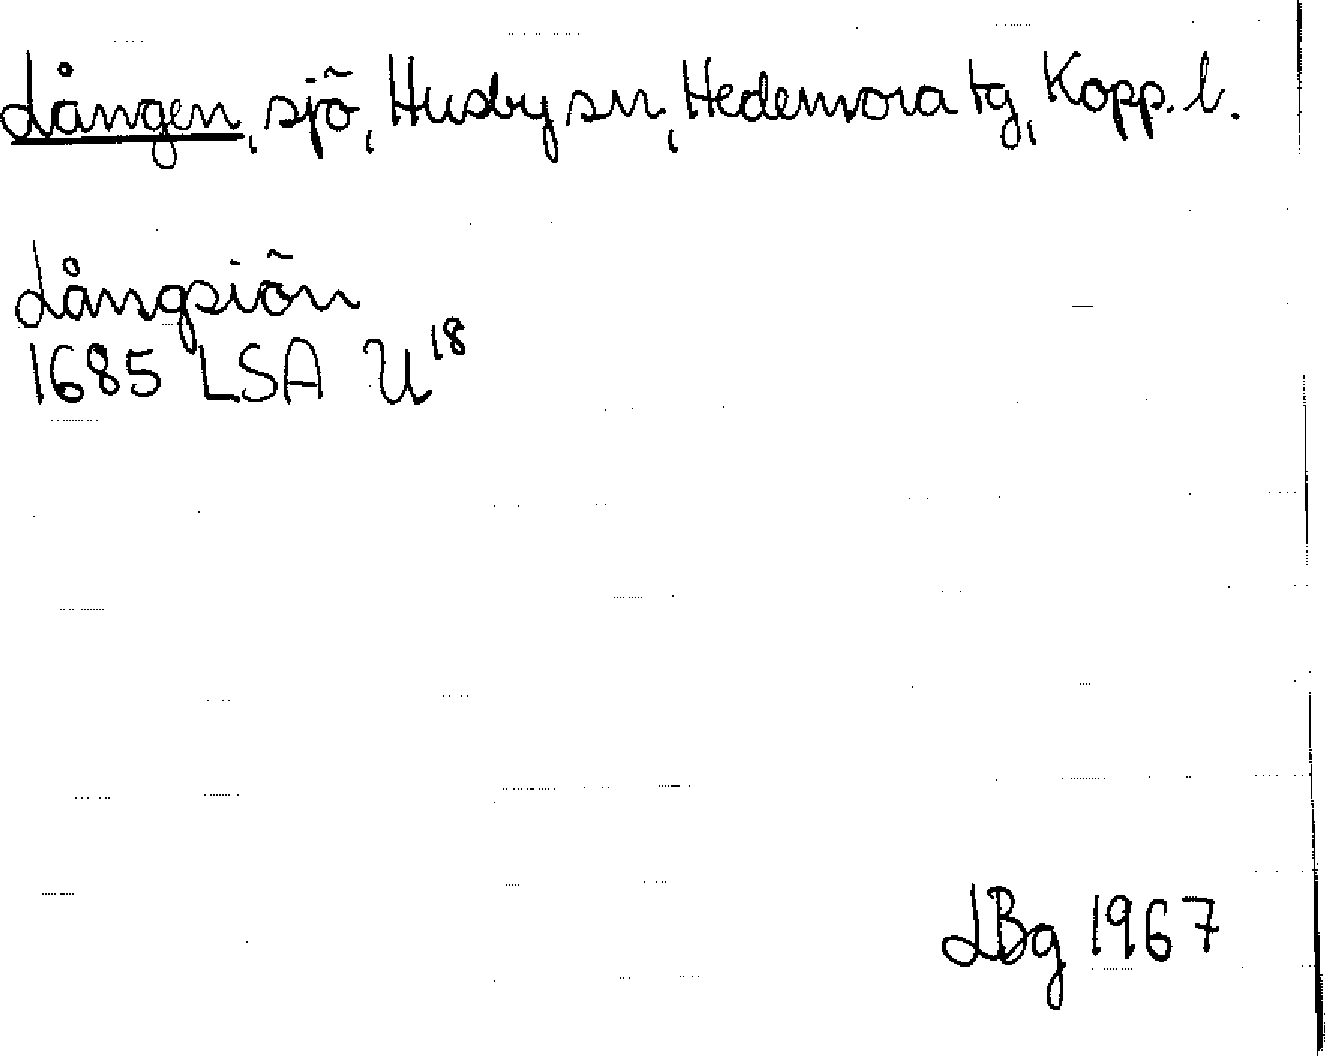 Lången, sjö, Husby sn, Hedemora tg, Kopp. l.
Långsiön
1685 LSA U18
LBg 1967